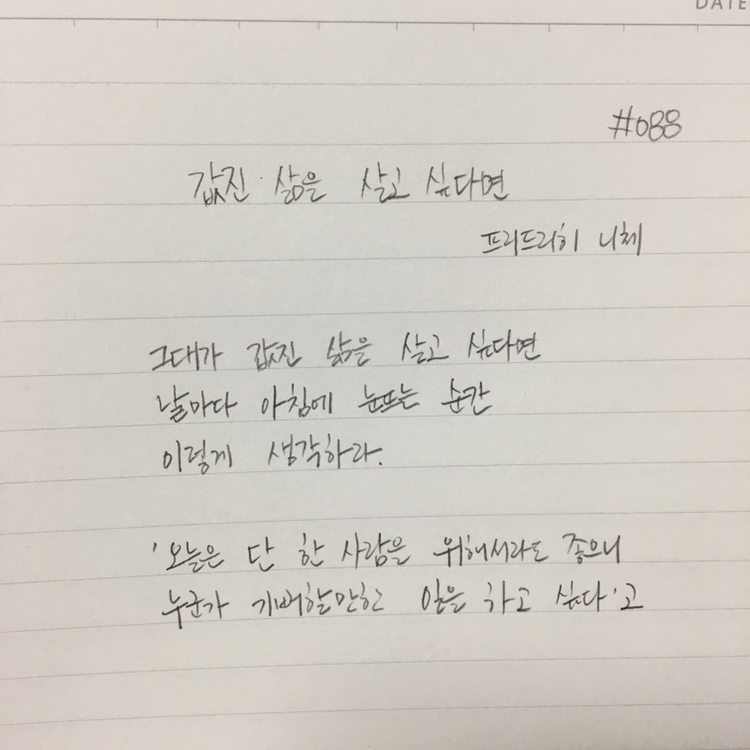 DATE
#088
값진 삶은 살고 싶다면
프리드리히 니체
그대가 값진 삶을 살고 싶다면
날마다 아침에 눈뜨는 순간
이렇게 생각하라.
'오늘은 단 한 사람을 위해서라도 좋으니
누군가 기뻐할만한 일을 하고 싶다'고